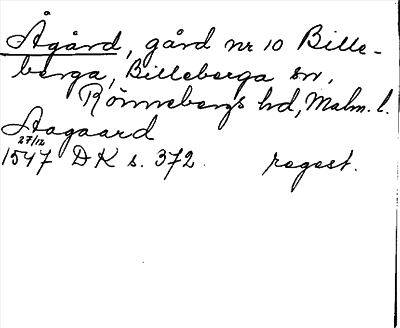 Ågård, gård nr 10 Bille-
berga, Billeberga sn,
Rönnebergs hd, Malm. l.
Aagaard
27/12
1547 DK s. 372. regest.